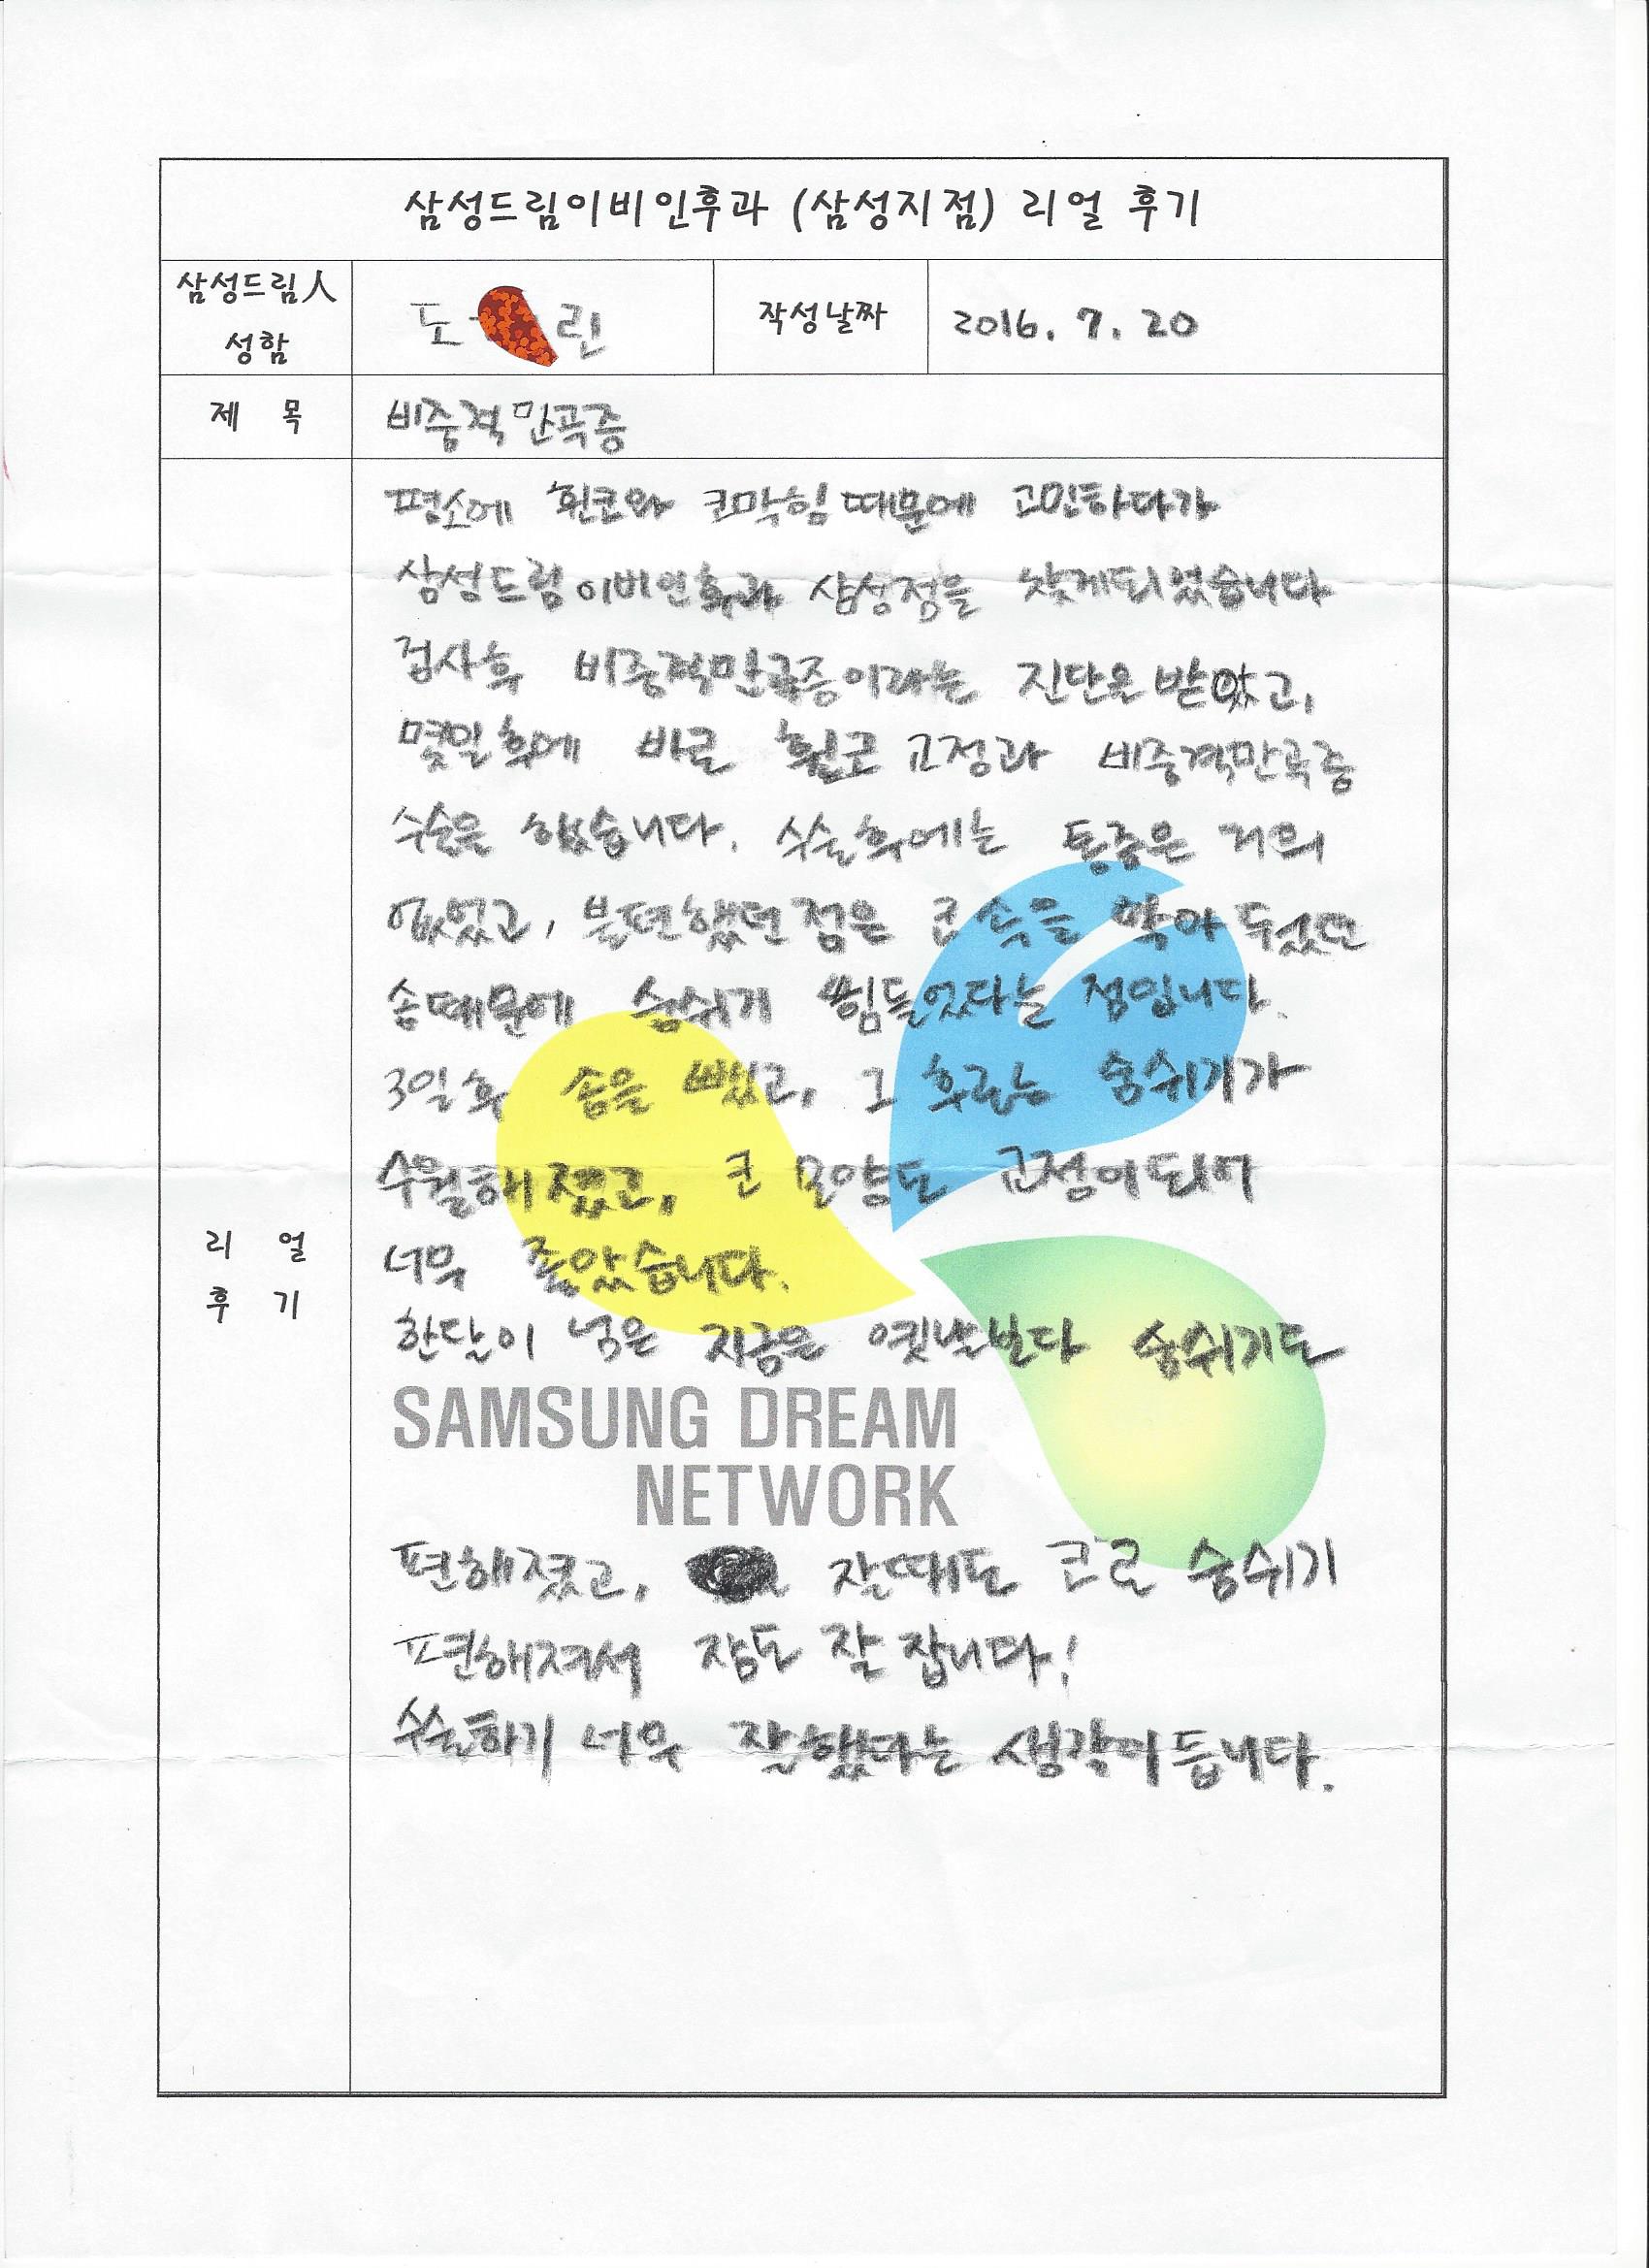 삼성드림이비인후과 (삼성지점) 리얼 후기
삼성드림人
성함
도 린
작성날짜
2016. 7. 20
제 목
비중격만곡증
평소에 휜코와 코막힘 때문에 고민하다가
삼성드림이비인후과 삼성점을 찾게되었습니다
검사후 비중격만곡증이라는 진단을 받았고,
몇일후에 바로 휠코 교정과 비중격만곡증
수술을 했습니다. 수술후에는 통증은 거의
없었고, 불편했던 점은 코 속을 막아 두었던
솜때문에 숨쉬기 힘들었다는 점입니다.
3일 후 솜을 뺐고, 그 후로는 숨쉬기가
수월해졌고, 코 모양도 교정이되어
너무 좋았습니다.
한달이 넘은 지금은 옛날보다 숨쉬기도
SAMSUNG DREAM
NETWORK
편해졌고, 잘때도 코로 숨쉬기
편해져서 잠도 잘 잡니다!
수술하기 너무 잘했다는 생각이 듭니다.
리 얼
후 기